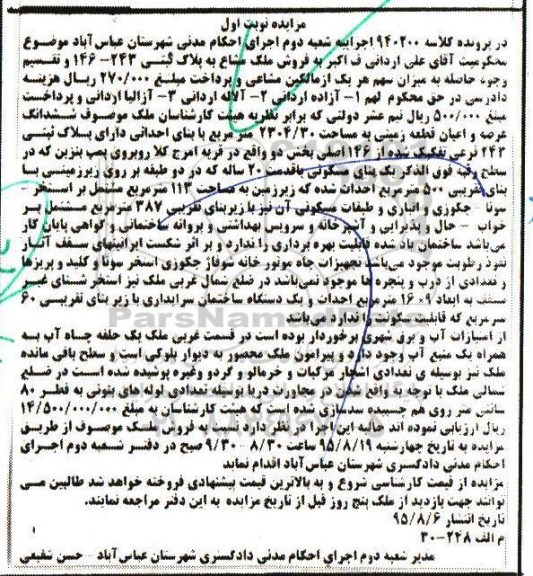 مزایده نوبت اول
در پرونده کلاسه ۹۴۰۲۰۰ اجراییه شعبه دوم اجرای احکام مدنی شهرستان عباس‌آباد موضوع
محکومیت آقای علی اردانی ف اکبر به فروش ملک مشاع به پلاک ثبتی ۲۴۳- ۱۴۶ و تقسیم
وجوه حاصله به میزان سهم هر یک ازمالکین مشاعی وپرداخت مبلغ ۲۷۰/۰۰۰ ریال هزینه
دادرسی در حق محکوم لهم ۱- آزاده اردانی ۲- آلاله اردانی ۳- آزالیا اردانی و پرداخت
مبلغ ۵۰۰/۰۰۰ ریال نیم عشر دولتی که برابر نظریه هیئت کارشناسان ملک موصوف ششدانگ
عرصه و اعیان قطعه زمینی به مساحت ۲۳۰۴/۳۰ متر مربع با بنای احداثی دارای پلاک ثبتی
۲۴۳ فرعی تفکیک شده از ۱۴۶ اصلی بخش دو واقع در قریه امرج کلا روبروی پمپ بنزین که در
سطح رقبه فوق الذکر یک بنای مسکونی باقدمت ۲۰ ساله که در دو طبقه بر روی زیرزمینی با
بنای تقریبی ۵۰۰ متر مربع احداث شده که زیرزمین به مساحت ۱۱۳ مترمربع مشتمل بر استخر-
سونا - جکوزی و انباری و طبقات مسکونی آن نیز با زیربنای تقریبی ۳۸۷ مترمربع مشتمل بر
خواب - حال و پذیرایی و آشپزخانه و سرویس بهداشتی و پروانه ساختمانی و گواهی پایان کار
می‌باشد ساختمان یاد شده قابلیت بهره برداری را ندارد و بر اثر شکست ایرانیتهای سقف آثار
نفوذ رطوبت موجود می‌باشد تجهیزات چاه موتور خانه شوفاژ جکوزی استخر سونا و کلید و پریزها
و تعدادی از درب و پنجره ها موجود نمی‌باشد در ضلع شمال غربی ملک نیز استخر شنای غیر
مسقف به ابعاد ۹*۱۶ مترمربع احداث و یک دستگاه ساختمان سرایداری با زیر بنای تقریبی ۶۰
مترمربع که قابلیت سکونت را ندارد می‌باشد
از امتیازات آب و برق شهری برخوردار بوده است در قسمت غربی ملک یک حلقه چاه آب به
همراه یک منبع آب وجود دارد و پیرامون ملک محصور به دیوار بلوکی است و سطح باقی مانده
ملک نیز بوسیله ی تعدادی اشجار مرکبات و خرمالو و گردو وغیره پوشیده شده است در ضلع
شمالی ملک با توجه به واقع شدن در مجاورت دریا بوسیله تعدادی لوله های بتونی به قطر ۸۰
سانتی متر روی هم چسبیده سدسازی شده است که هیئت کارشناسان به مبلغ ۱۴/۵۰۰/۰۰۰/۰۰۰
ریال ارزیابی نموده اند حالیه این اجرا در نظر دارد نسبت به فروش ملک موصوف از طریق
مزایده به تاریخ چهارشنبه ۹۵/۸/۱۹ ساعت ۸/۳۰ - ۹/۳۰ صبح در دفتر شعبه دوم اجرای
احکام مدنی دادگستری شهرستان عباس‌آباد اقدام نماید
مزایده از قیمت کارشناسی شروع و به بالاترین قیمت پیشنهادی فروخته خواهد شد طالبین می
توانند جهت بازدید از ملک پنج روز قبل از تاریخ مزایده به این دفتر مراجعه نمایند.
تاریخ انتشار ۹۵/۸/۶
م الف ۲۴۸-۳۰
مدیر شعبه دوم اجرای احکام مدنی دادگستری شهرستان عباس‌آباد - حسن شفیعی
ParsNamadData